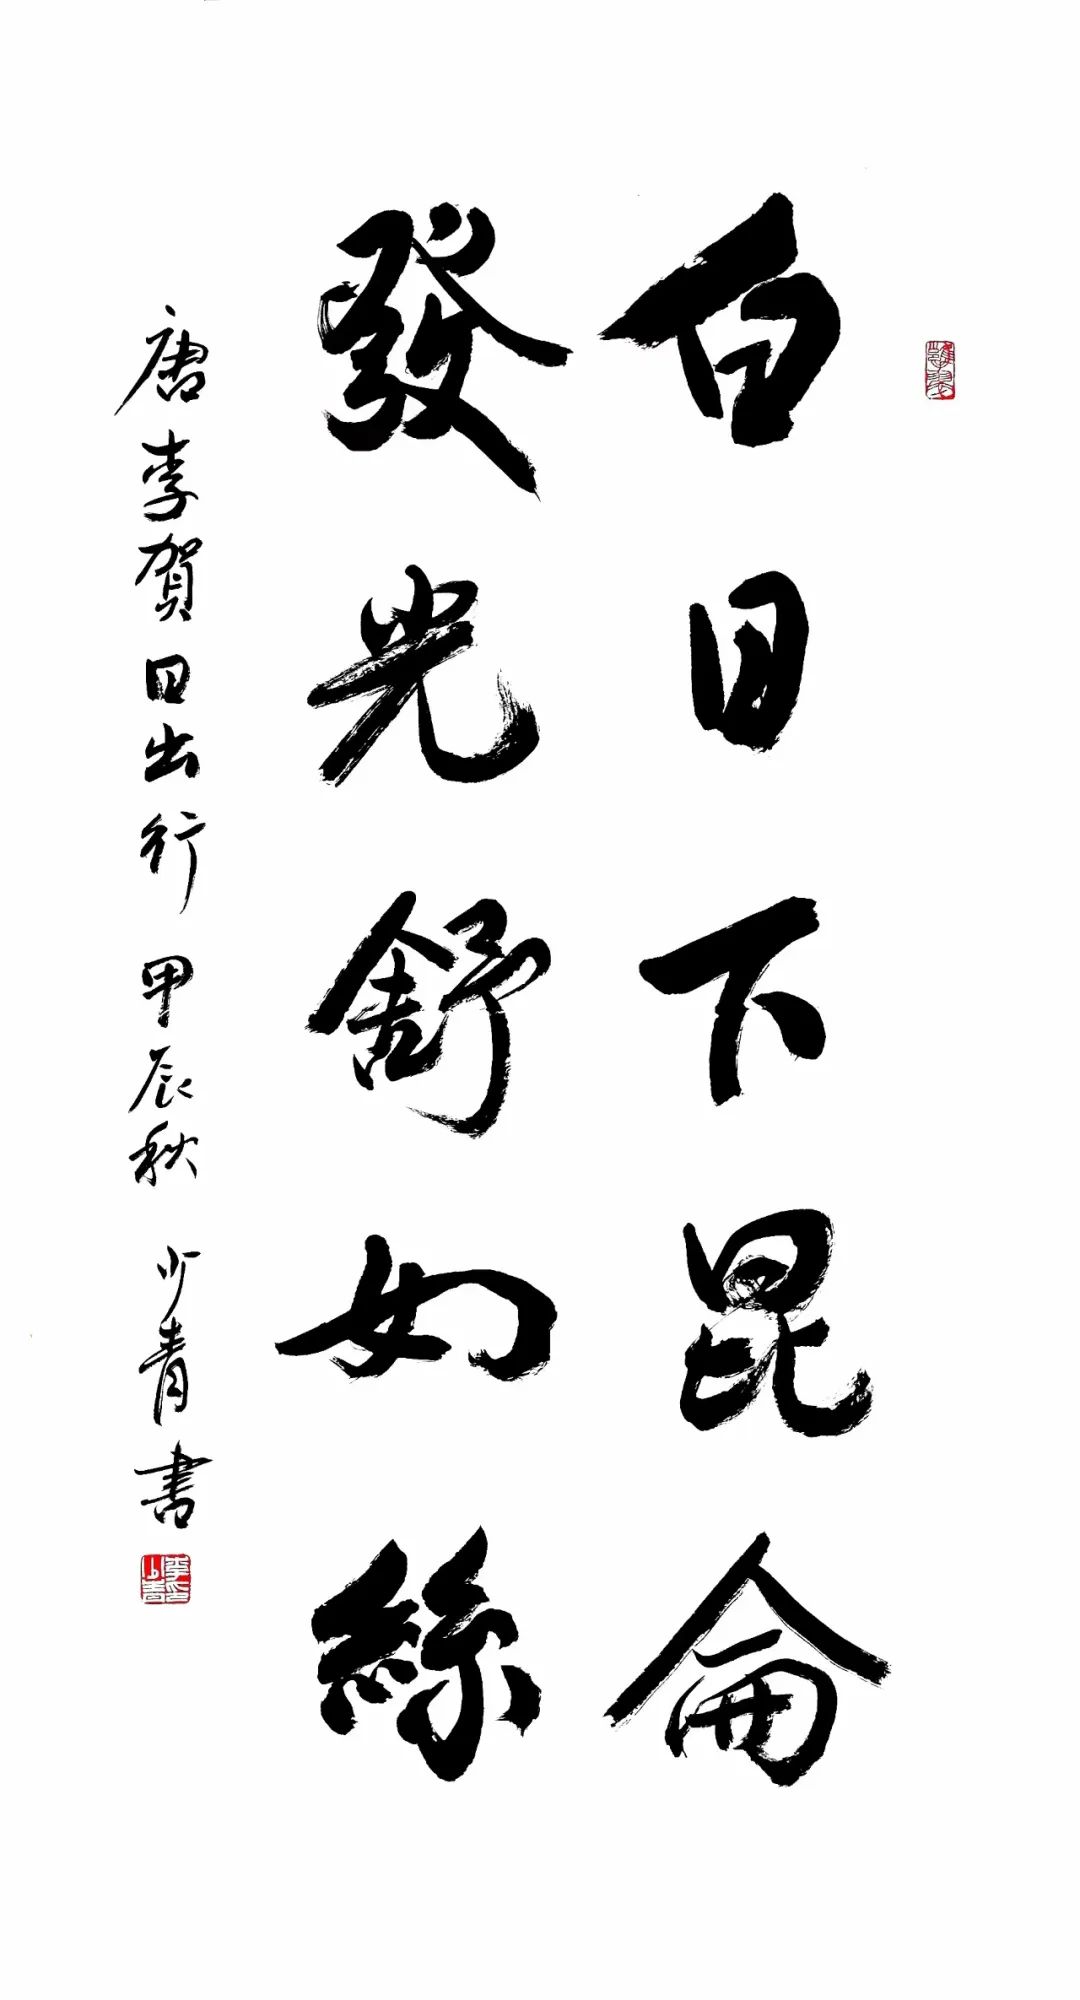 白日下昆侖
發光舒如絲
唐李賀日出行 甲辰秋 少青書